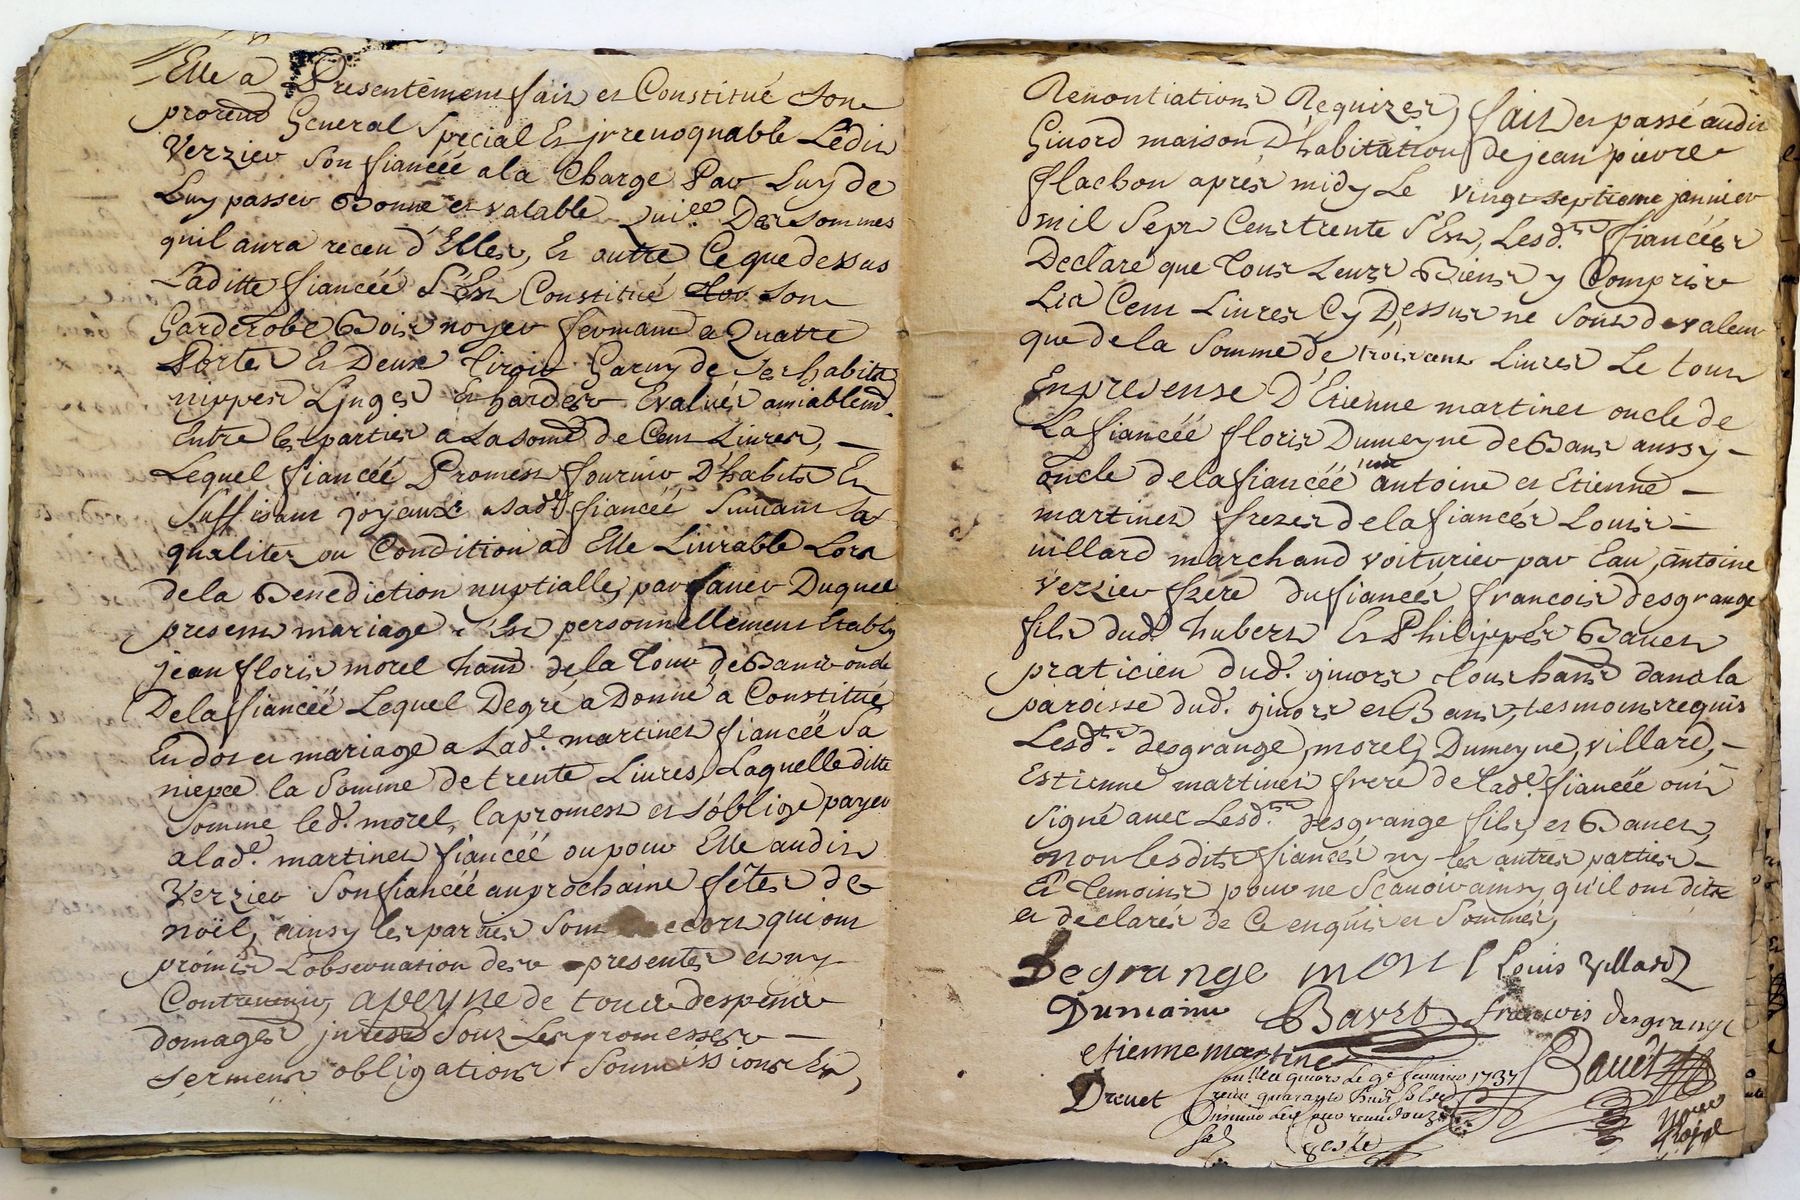 Elle a Presentement fait et Constitué Son
procend General Special Et jrrevoquable Ledit
Verzier Son fiancéé a la Charge Par Luy de
Luy passer Bonne et valable quitce Des Sommes
quil aura receu d'Elles, Et outre Ce que dessus
Laditte fiancéé S'Est Constitué Son
Garderobe Bois noyer fermant a Quatre
Portes Et Deux Tiroir Garny de Ses habits
nippes Linges Et hardes Evalués amiablemt
Entre les parties a La some de Cent Livres, —
Lequel fiancéé Promest fournir D'habits Et
Suffisant joyaux a sade fiancéé Suivant Sa
qualites ou Condition a Elle Livrable Lors
de la Benediction nuptialle, par faver Duquel
present mariage s'Est personnellement Estably
jean floris morel hant de la Tour de Bans oncle
De la fiancéé Lequel De gré a Donné a Constitué
En dot et mariage a Lade. martinet fiancéé Sa
niepce la Somme de trente Livres, Laquelle ditte
Somme led. morel, la promest et s'oblige payer
a lade. martinet fiancéé ou pour Elle audit
Verzier Son fiancéé au prochaine fêtes de
noël, ainsy les parties Sont d'accort qui ont
promis L'observation des presentes et ny
Contrevenir, a peyne de tous despens
domages jnterests Souz Les promesses —
serment obligations Soumissions Et,
Renontiations Requizes, fait et passé audit
Givord maison D'habitation de jean pierre
flachon aprés midy Le vingt septieme janvier
mil Sept Cent trente Sept, Lesd.ts fiancéés
Declaré que Tous Leurs Biens y Compris
Les Cent Livres Cy Dessus ne Sont de valeur
que de la Somme de trois cent Livres Le tout
En presense D'Etienne martinet oncle de
La fiancéé floris Dumeyne de Bans aussy —
oncle de la fiancéé antoine et Etienne —
martinet frezes de la fiancéé Louis —
villard marchand voiturier par Eau, antoine
Verzier frere du fiancéé francois desgrange
fils dud. hubert Et Philippes Bavet
praticien dud. givors tous hants dans la
paroisse dud. givors et Bans, tesmoins requis
Lesd.ts desgrange, morel, Dumeyne, villard, —
Estienne martinet frere de lade. fiancéé ont
Signé avec Lesd.ts desgrange fils, et Bavet,
non lesdits fiancés ny les autres parties —
Et temoins pour ne Scavoir ainsy qu'il ont dits
et declarés de Ce enquis et Sommés,
Degrange morel Louis villard
Dumaine Bavet francois desgrange
etienne martinet
Bauet
Drevet
Conlle a givors Le 9e fevrier 1737
receu quarante huit sols